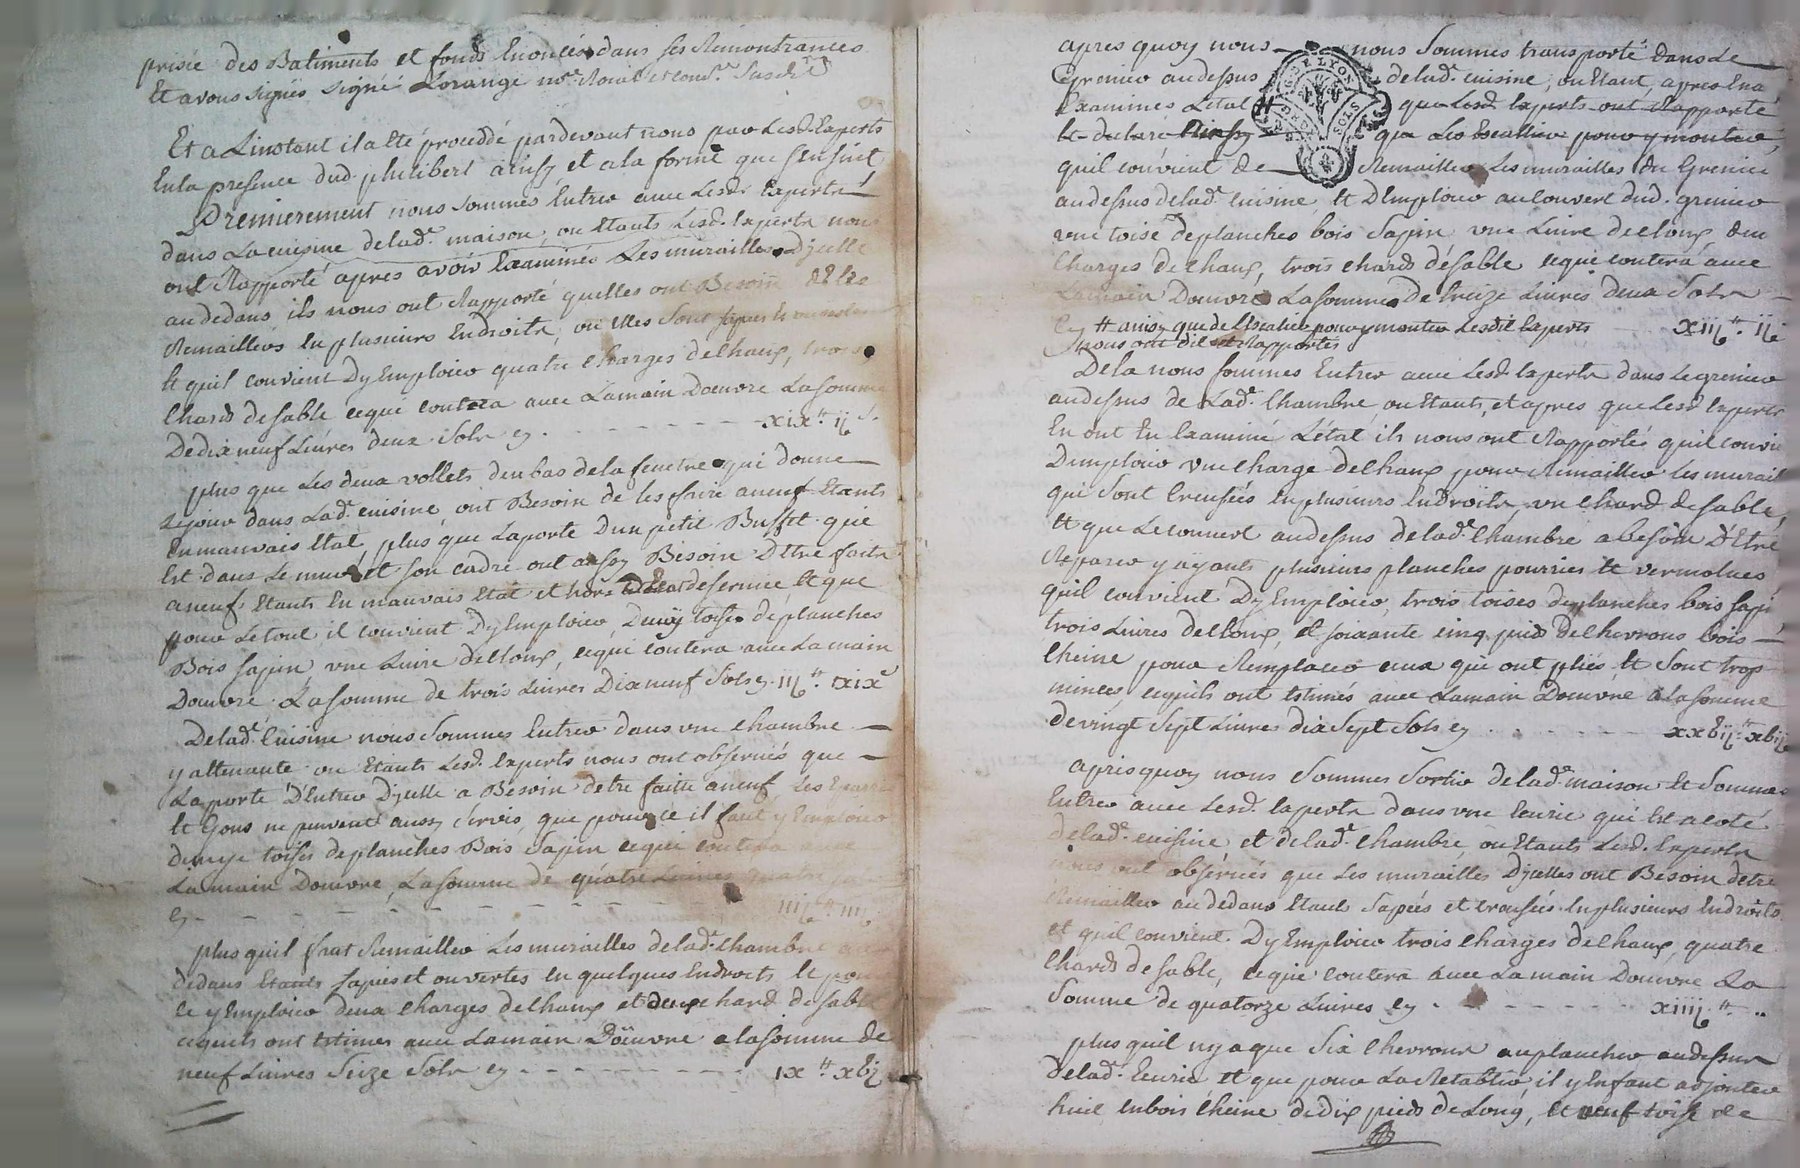 prisée des Batiments et fonds Enoncés dans ses Remontrances
Et avons signés signé Lorange
Et a Linstant il a Eté proceddé pardevant nous par Lesd. Experts
En la presence dud. philibert ainsy et a la forme que sensuit
Premierement nous sommes Entrer avec Lesd. Experts
dans La cuisine de lad.e maison, ou Etants Lesd. Experts nous
ont Rapporté apres avoir Examinée Les murailles Djcelle
au dedans ils nous ont Rapporté quelles ont Besoin dEtre
Remaillées En plusieurs Endroits, ou Elles sont
Et quil convient Dy Employer quatre Charges de Chaux, trois
Chards de sable ce qui coutera avec La main Dœuvre La somme
De dix neuf Livres deux Sols cy - - - - - - - xix.tt ij s.
plus que Les deux vollets d'en bas de la fenetre qui donne
Le jour dans Lad.e cuisine ont Besoin de les faire a neuf Etants
En mauvais Etat, plus que La porte Dun petit Buffet qui
Est dans Le mur et son cadre ont aussy Besoin DEtre faits
a neuf Etants En mauvais Etat et hors DEtat de fermer, Et que
pour Le tout il convient Dy Employer Demÿ toise de planches
Bois sapin, vne Livre de Cloux, ce qui Coutera avec La main
Dœuvre La somme de trois Livres Dix neuf Sols cy. iij tt xix s
De lad.e Cuisine nous Sommes Entrer dans vne Chambre
y attenante ou Etants Lesd. Experts nous ont observés que
La porte D'Entrer Djcelle a Besoin detre faitte a neuf, Les
Et Gons ne peuvent aussy Servir, que pour ce il faut y Employer
demye toise de planches Bois Sapin ce qui coutera avec
La main Dœuvre, La somme de quatre Livres quatre
cy - - - - - - - - - - iiij tt iiij
plus quil faut Remailler Les murailles de lad.e Chambre au
dedans Etants sapées et ouvertes En quelques Endroits Et pour
ce y Employer deux Charges de Chaux et deux chards de sable
ce quils ont Estimés avec La main Dœuvre a la somme de
neuf Livres Seize Sols cy - - - - - - - - ix tt xvj
apres quoy nous nous Sommes transporté dans Le
Grenier au dessus de lad.e cuisine, ou Etant, apres En a
Examinés Létat que Lesd. Experts ont Rapporté
Et declaré que Les Escallier pour y monter,
quil convient de Remailler Les murailles du Grenier
au dessus de lad.e Cuisine, Et DEmployer au Couvert dud. grenier
vne toise de planches bois Sapin, vne Livre de Cloux, deux
Charges de Chaux, trois chards de sable ce qui coutera avec
La main Dœuvre La somme de treize Livres deux Sols
cy tt ainsy que de LEscalier pour y monter Lesdit Experts xiij tt. ij s
nous ont dit et Rapportés
De la nous sommes Entrer avec Lesd. Experts dans Le grenier
au dessus de Lad.e Chambre ou Etants, et apres que Lesd. Experts
En ont En Examiné Létat ils nous ont Rapportés quil convient
D'employer vne charge de Chaux pour Remailler Les murailles
qui sont Creusées En plusieurs Endroits, vn Chard de sable,
Et que Le couvert au dessus de lad.e Chambre a besoin D'Etre
Reparer y ayants plusieurs planches pourries Et vermolues
quil convient Dy Employer, trois toises de planches bois sapin
trois Livres de Cloux, et soixante cinq pieds de Chevrons bois
Cheine pour Remplacer ceux qui ont pliés Et sont trop
minces, ce quils ont Estimés avec La main Dœuvre a La somme
de vingt Sept Livres dix Sept Sols cy - - - - - xxvij tt xvij s
apres quoy nous Sommes Sortir de lad.e maison Et Sommes
Entrer avec Lesd. Experts dans vne Ecurie qui Est a coté
de lad.e cuisine et de lad.e Chambre, ou Etants Lesd. Experts
nous ont observés que Les murailles Djcelles ont Besoin detre
Remailler au dedans Etant Sapées et creusées En plusieurs Endroits
et quil convient Dy Employer trois Charges de Chaux, quatre
Chards de sable, ce qui coutera avec La main Dœuvre La
Somme de quatorze Livres cy - - - - - - xiiij tt. ..
plus quil ny a que Six Chevrons au plancher au dessus
de lad.e Ecurie et que pour La Retablir il y En faut adjouter
huit En bois Cheine de dix pieds de Long, Et neuf toise de